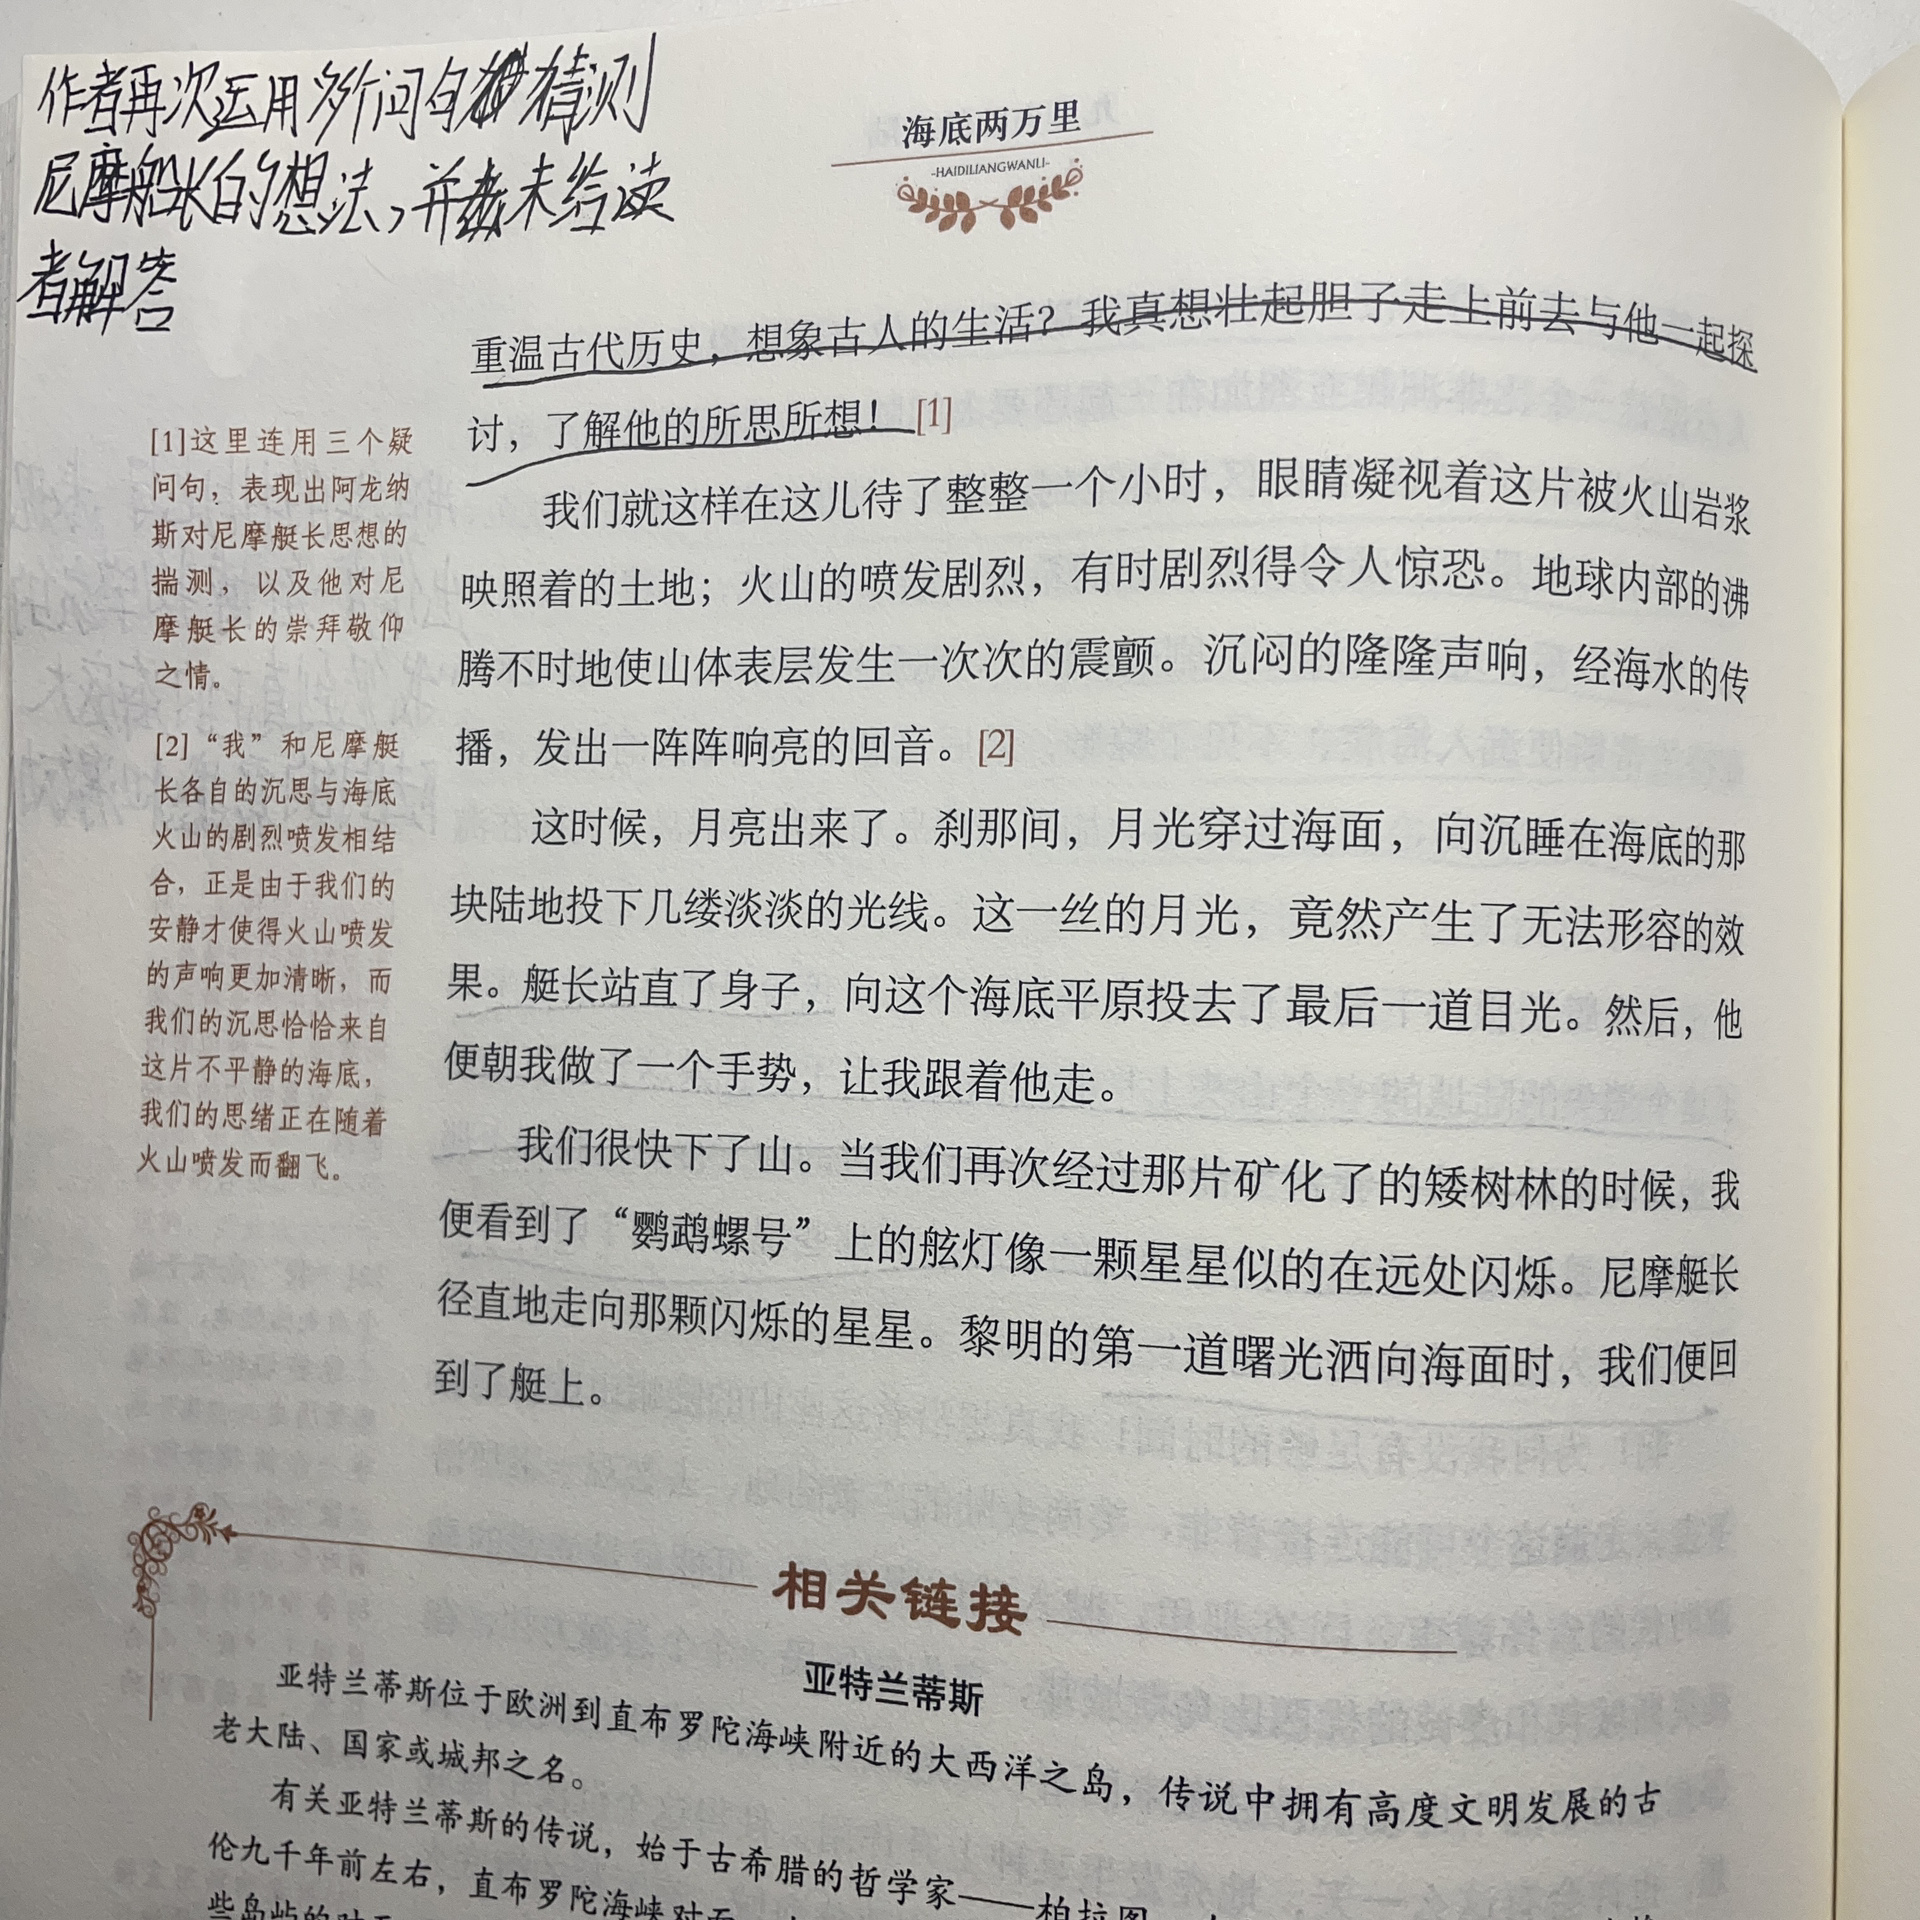 作者再次运用多个问句猜测
尼摩船长的想法，并未给读
者解答
海底两万里
-HAIDILIANGWANLI-
重温古代历史，想象古人的生活？我真想壮起胆子走上前去与他一起探
讨，了解他的所思所想！[1]
我们就这样在这儿待了整整一个小时，眼睛凝视着这片被火山岩浆
映照着的土地；火山的喷发剧烈，有时剧烈得令人惊恐。地球内部的沸
腾不时地使山体表层发生一次次的震颤。沉闷的隆隆声响，经海水的传
播，发出一阵阵响亮的回音。[2]
这时候，月亮出来了。刹那间，月光穿过海面，向沉睡在海底的那
块陆地投下几缕淡淡的光线。这一丝的月光，竟然产生了无法形容的效
果。艇长站直了身子，向这个海底平原投去了最后一道目光。然后，他
便朝我做了一个手势，让我跟着他走。
我们很快下了山。当我们再次经过那片矿化了的矮树林的时候，我
便看到了“鹦鹉螺号”上的舷灯像一颗星星似的在远处闪烁。尼摩艇长
径直地走向那颗闪烁的星星。黎明的第一道曙光洒向海面时，我们便回
到了艇上。
[1]这里连用三个疑
问句，表现出阿龙纳
斯对尼摩艇长思想的
揣测，以及他对尼
摩艇长的崇拜敬仰
之情。
[2]“我”和尼摩艇
长各自的沉思与海底
火山的剧烈喷发相结
合，正是由于我们的
安静才使得火山喷发
的声响更加清晰，而
我们的沉思恰恰来自
这片不平静的海底，
我们的思绪正在随着
火山喷发而翻飞。
相关链接
亚特兰蒂斯
亚特兰蒂斯位于欧洲到直布罗陀海峡附近的大西洋之岛，传说中拥有高度文明发展的古
老大陆、国家或城邦之名。
有关亚特兰蒂斯的传说，始于古希腊的哲学家——柏拉图
伦九千年前左右，直布罗陀海峡对面
些岛屿的对